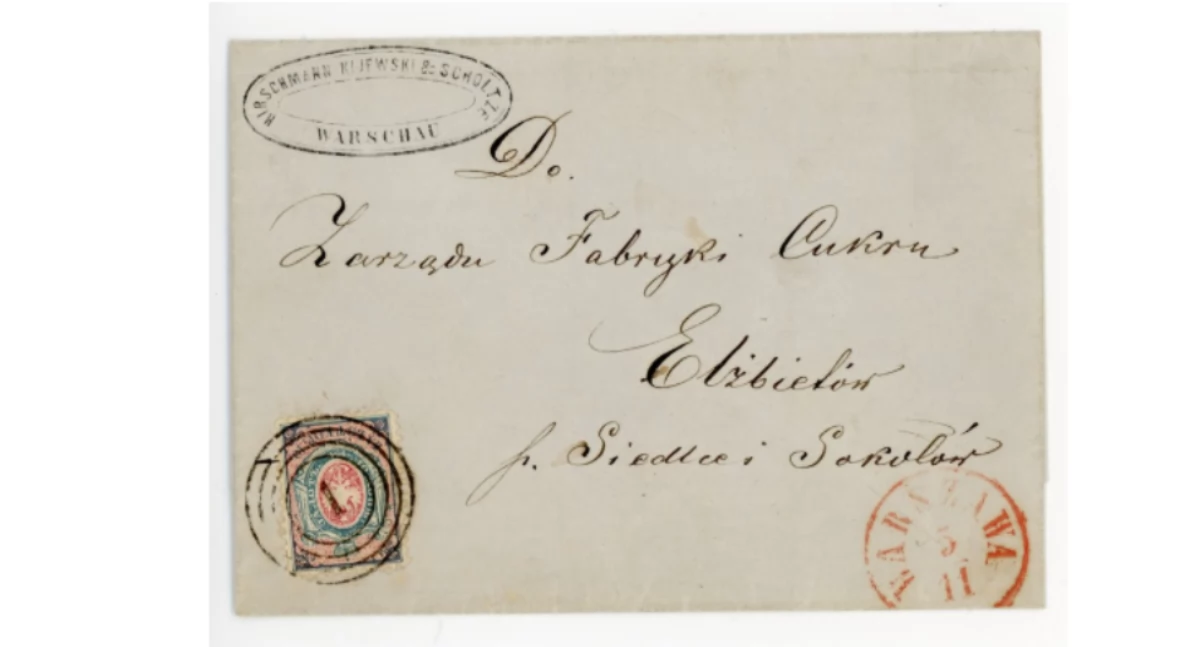 HIRSCHMANN KIJEWSKI & SCHOLTZE
WARSCHAU
Do.
Zarządu Fabryki Cukru
Elżbietów
p. Siedlce i Sokołów
1
WARSZAWA
5
11